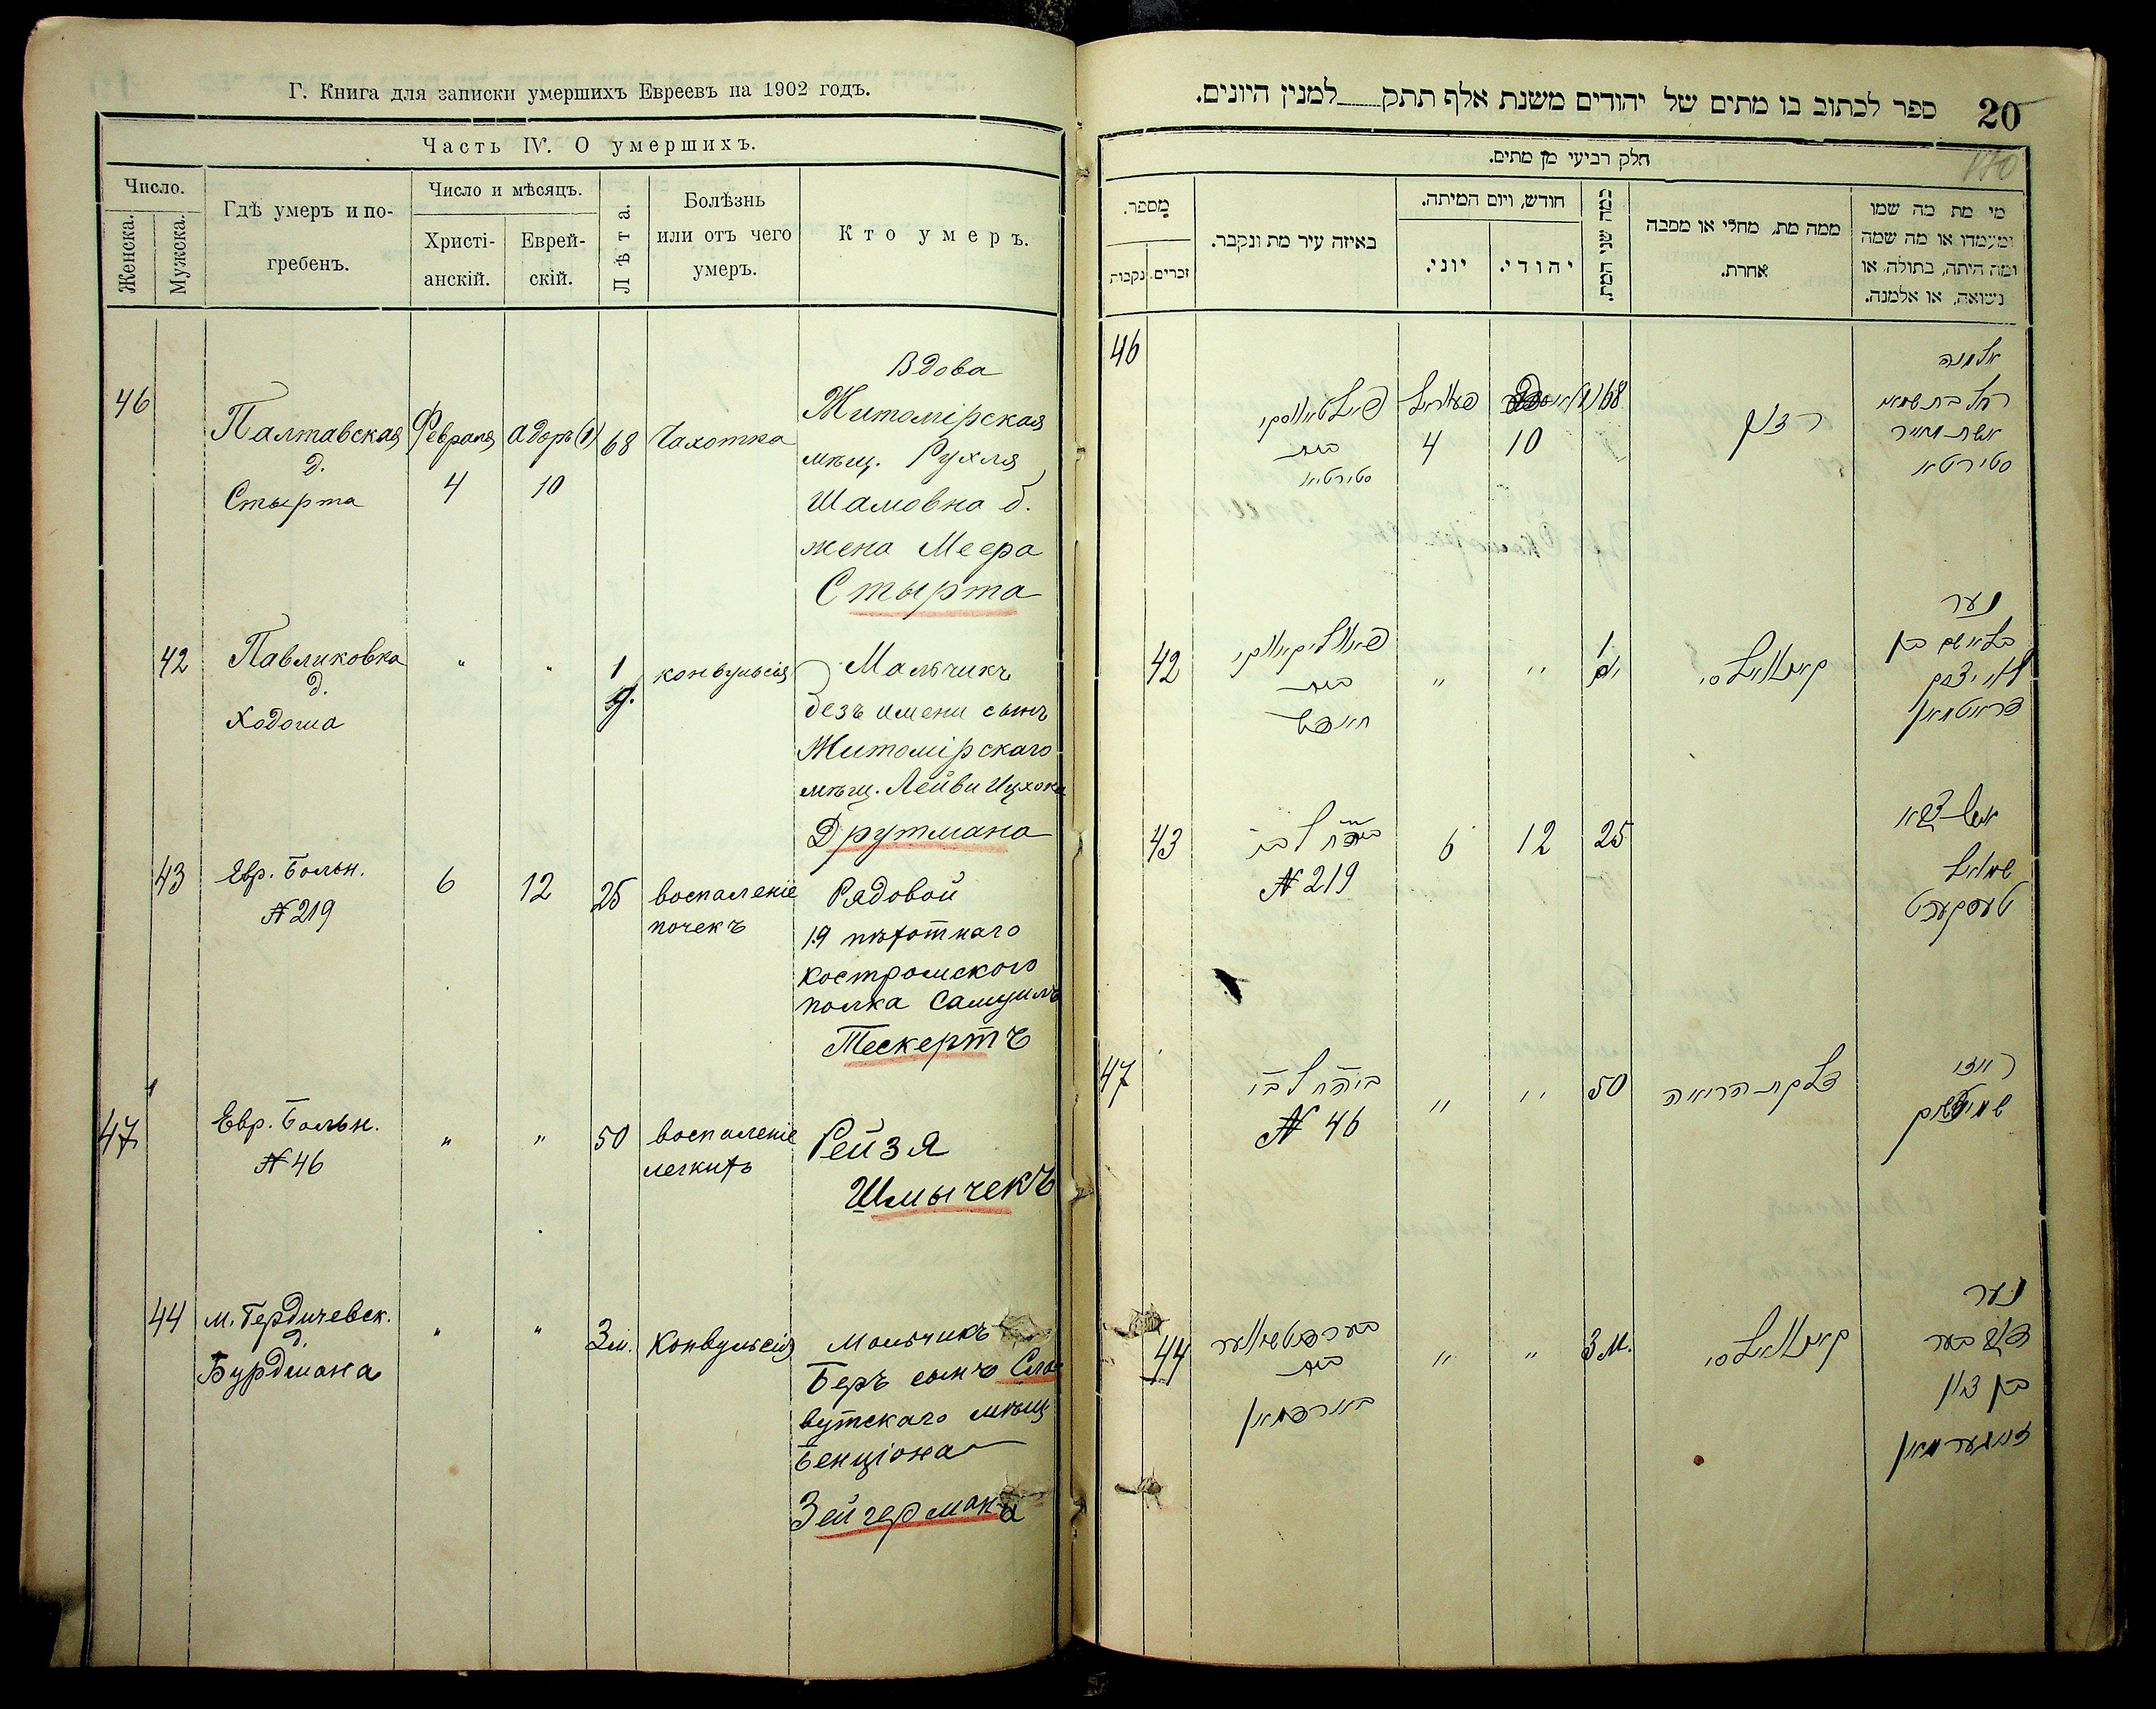 Г. Книга для записки умершихъ Евреевъ на 1902 годъ.
Часть IV. О умершихъ.
Число.
Женска.
Мужска.
Гдѣ умеръ и по-
гребенъ.
Число и мѣсяцъ.
Христі-
анскій.
Еврей-
скій.
Лѣта.
Болѣзнь
или отъ чего
умеръ.
Кто умеръ.
46
Палтавская
д.
Стырта
Февраля
4
Адоръ (1)
10
68
Чахотка
Вдова
Житомірская
мѣщ. Рухля
Шамовна б.
жена Меера
Стырта
42
Павликовка
д.
Ходоша
"
"
1
конвульсія
Мальчикъ
безъ имени сынъ
Житомірскаго
мѣщ. Лейви Ицхока
Друтмана
43
Евр. Больн.
№ 219
6
12
25
воспаленіе
почекъ
Рядовой
19 пѣхотнаго
Костромского
полка Самуилъ
Тескертъ
47
Евр. Больн.
№ 46
"
"
50
воспаленіе
легкихъ
Рейзя
Шмычекъ
44
м. Бердичевск.
д.
Бурдмана
"
"
3 м.
Конвульсія
Мальчикъ
Беръ сынъ Сла
вутскаго мѣщ
Бенціона
Зейгермана
20
ספר לכתוב בו מתים של יהודים משנת אלף תתק למנין היונים.
חלק רביעי מן מתים.
מספר.
זכרים.
נקבות
באיזה עיר מת ונקבר.
חודש, ויום המיתה.
יוני.
יהודי.
כמה שני המת.
ממה מת, מחלי או מסבה
אחרת.
מי מת מה שמו
ומעמדו או מה שמה
ומה היתה, בתולה, או
נשואה, או אלמנה.
46
בית
סטירטא
4
10
68
אלמנה
רחל בת
אשת מאיר
סטירטא
42
בית
"
"
1
קאנוואולסי
נער
בלא שם בן
לוי יצחק
דראטמאן
43
№ 219
6
12
25
שמואל
טעסקערט
47
№ 46
"
"
50
דלקת הריאה
רייזי
44
בית
בארדמאן
"
"
3 м.
קאנוואולסי
נער
בן ציון
זייגערמאן